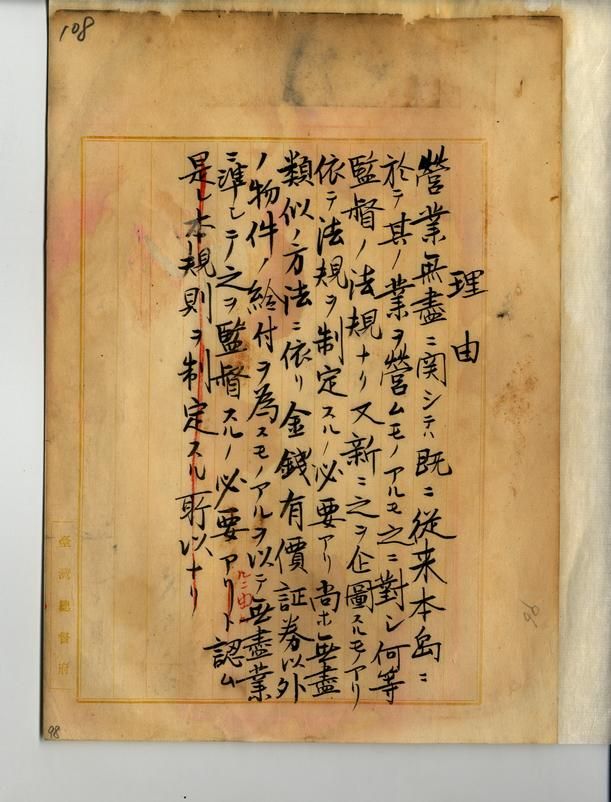 108
理由
營業無盡ニ関シテハ既ニ従来本島ニ
於テ其ノ業ヲ營ムモノアルモ之ニ對シ何等
監督ノ法規ナリ又新ニ之ヲ企圖スルモアリ
依テ法規ヲ制定スルノ必要アリ尚ホ無盡
類似ノ方法ニ依リ金錢有價証券以外
ノ物件ノ給付ヲ為スモノアルヲ以テ無盡業
ニ準シテ之ヲ監督スルノ必要アリト認ム
ルニ由ル
是レ本規則ヲ制定スル所以ナリ
臺灣總督府
96
98